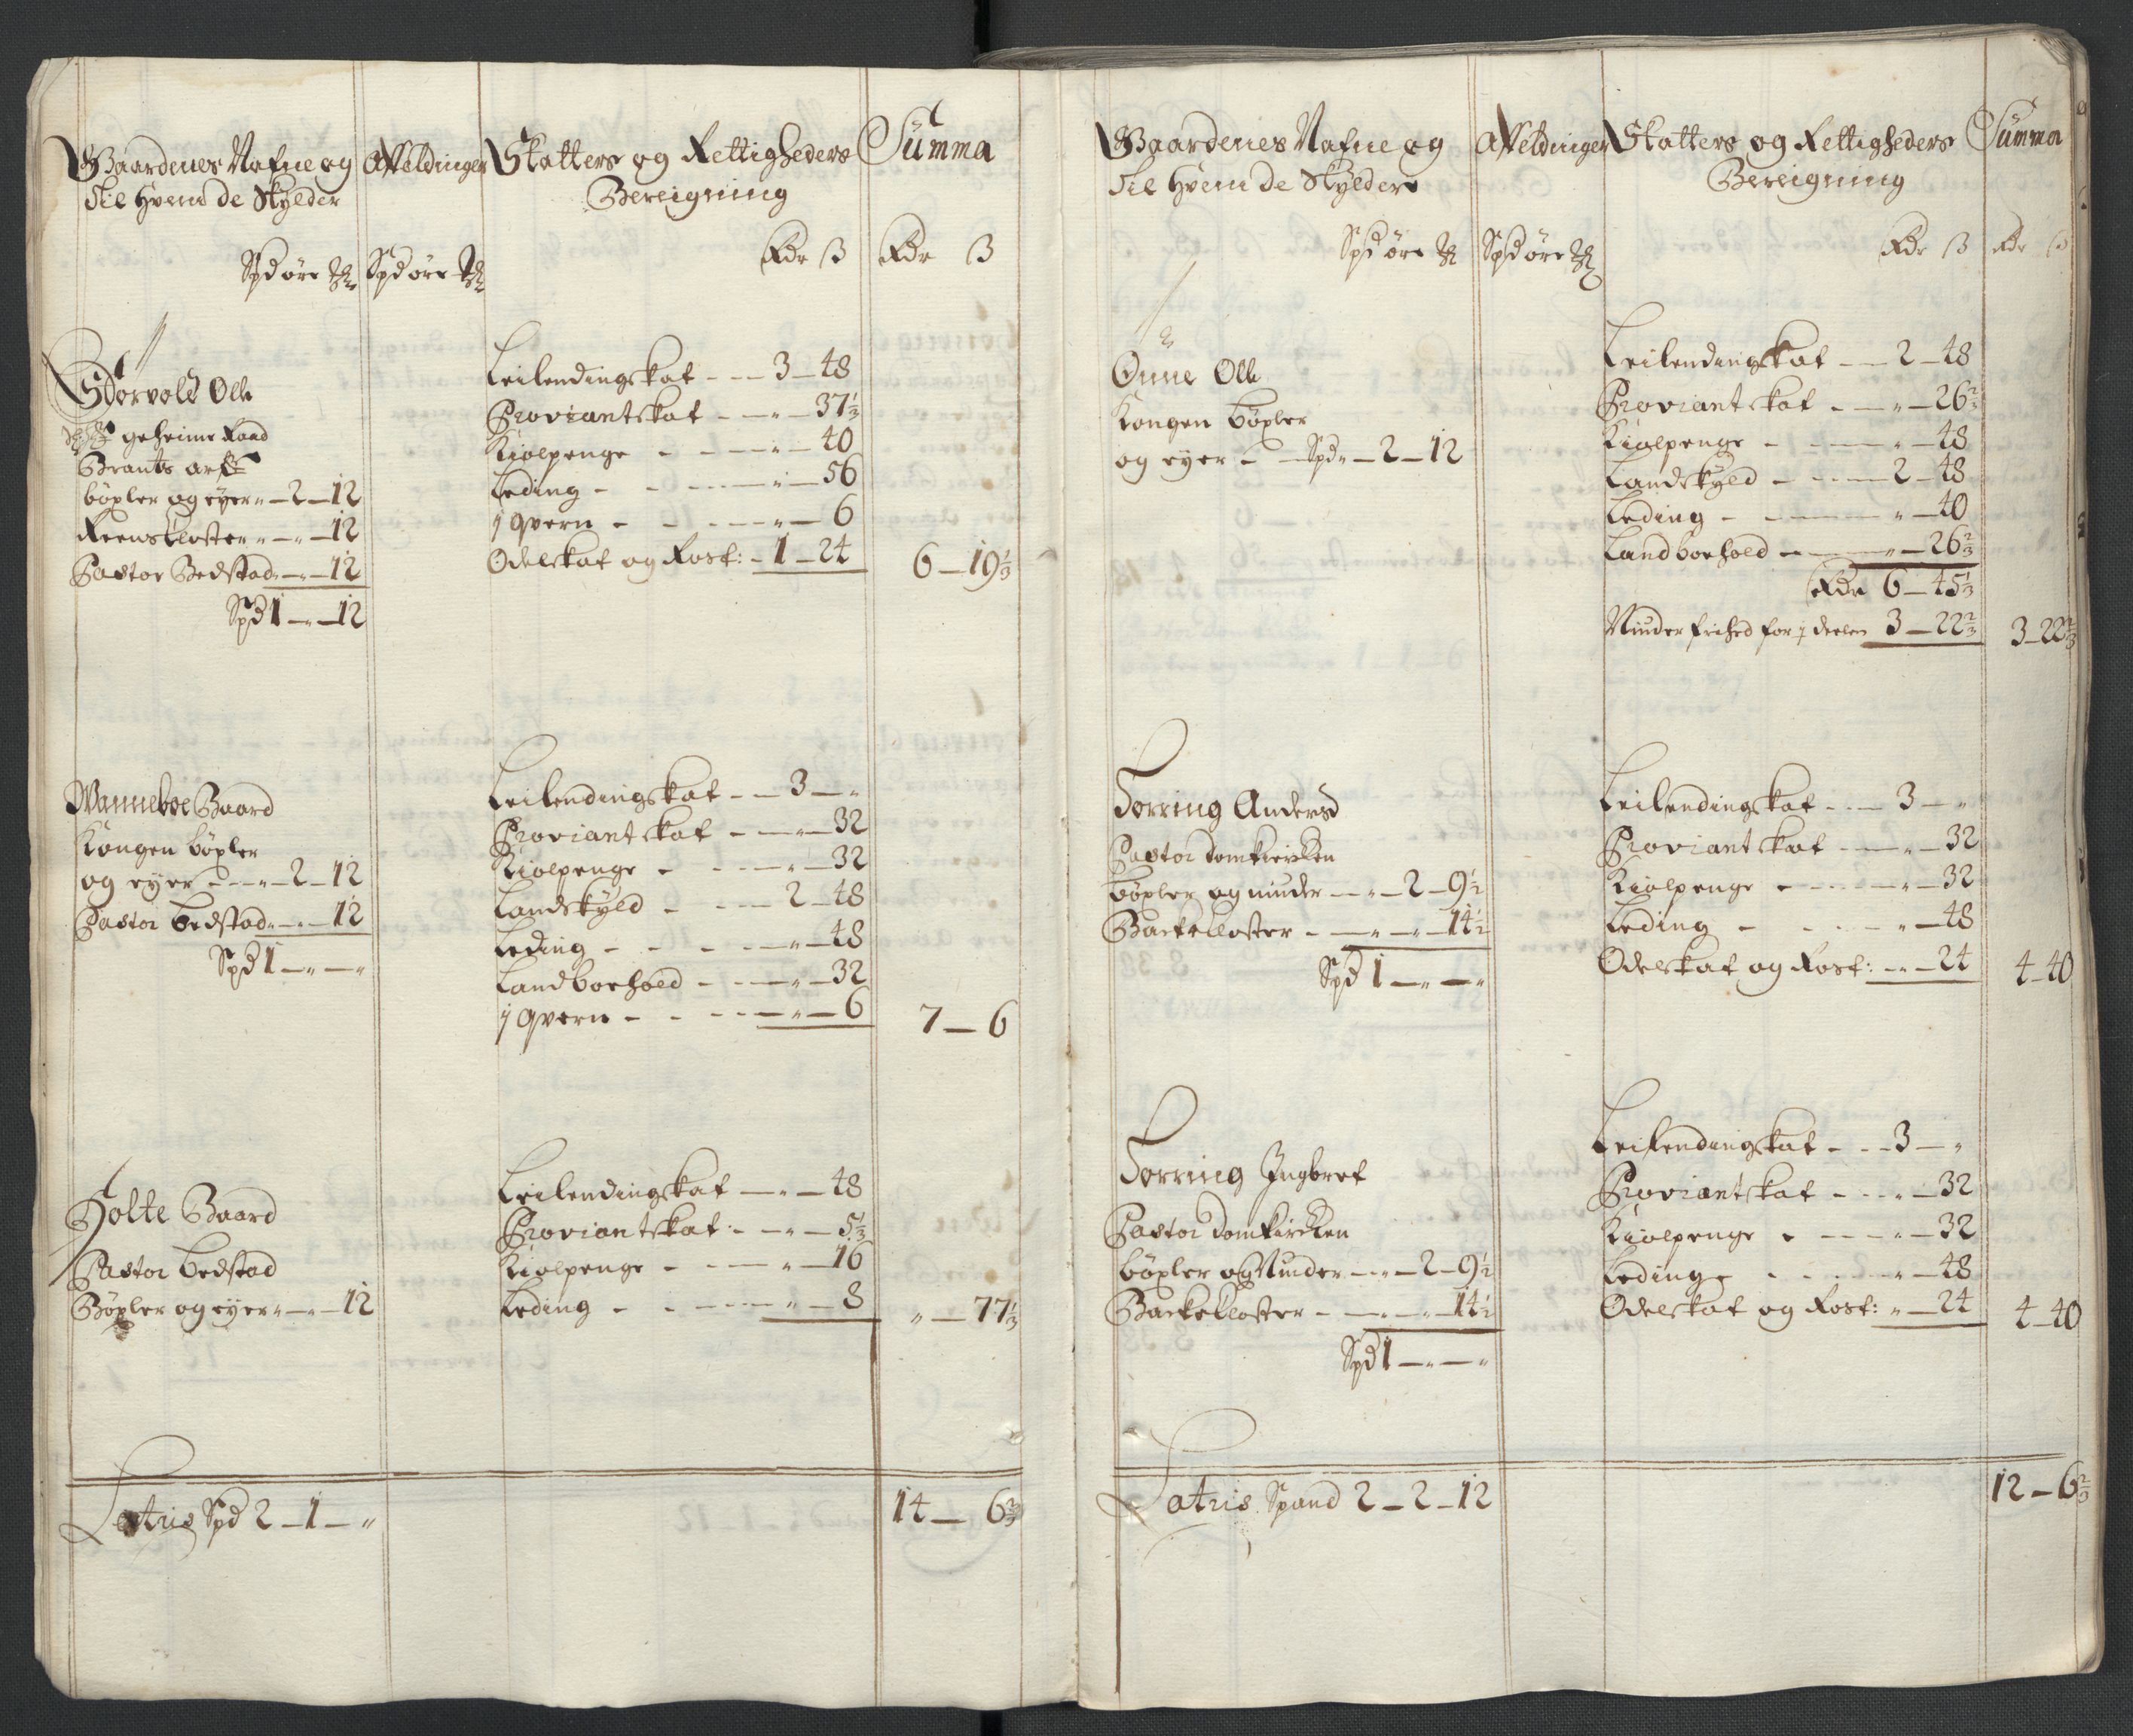 Gaardenes Nafne og
Til Hvem de Skylder
Spd øre
Affeldinger
Spd øre
Skatters og Rettigheders
Bereigning
Rdr ß
Summa
Rdr ß
Størvold Olle
geheime Raad
Brants arf
bøxler og eyer „ — 2 — 12
Reenskloster „ — „ — 12
Pastor Bedstad — „ — 12
Spd 1 — „ — 12
Leilendingskat - - - 3 — 48
Proviantskat - - „ — 37 1/3
Kiølpenge - - - „ — 40
Leding - - - „ — 56
1 Qvern - - - „ — 6
Odelskat og Rost: - 1 — 24
6 — 19 1/3
Wanneboe Gaard
Kongen bøxler
og eyer - - „ — 2 — 12
Pastor bedstad „ — „ — 12
Spd 1 — „ — „
Leilendingskat - - 3 — „
Proviantskat - - „ — 32
Kiølpenge - - - „ — 32
Landskyld - - - 2 — 48
Leding - - - „ — 48
Landboehold - - - „ — 32
1 Qvern - - - „ — 6
7 — 6
Holte Gaard
Pastor bedstad
Bøxler og eyer „ — „ — 12
Leilendingskat — „ — 48
Proviantskat - - „ — 5 1/3
Kiølpenge - - - „ — 16
Leding - - - „ — 8
„ — 77 1/3
Latris Spd 2 — 1 — „
14 — 6 2/3
Gaardenes Nafne og
Til Hvem de Skylder
Spd øre
Affeldinger
Spd øre
Skatters og Rettigheders
Bereigning
Rdr ß
Summa
Rdr ß
Onne Olle
Kongen bøxler
og eyer - - Spd „ — 2 — 12
Leilendingskat - - 2 — 48
Proviantskat - - „ — 26 2/3
Kiølpenge - - - „ — 48
Landskyld - - - 2 — 48
Leding - - - „ — 40
Landboehold - - „ — 26 2/3
Rdr 6 — 45 1/3
Minder frihed for 1/2 deelen 3 — 22 2/3
3 — 22 2/3
Forring Andersd
Pastor domkircken
bøxler og minder — „ — 2 — 9 1/2
Backekloster - — „ — „ — 14 1/2
Spd 1 — „ — „
Leilendingskat - - - 3 — „
Proviantskat - - - „ — 32
Kiølpenge - - - „ — 32
Leding - - - „ — 48
Odelskat og Rost: - „ — 24
4 — 40
Forring Ingbret
Pastor domkircken
bøxler og Minder — „ — 2 — 9 1/2
Backekloster - — „ — „ — 14 1/2
Spd 1 — „ — „
Leilendingskat - - - 3 — „
Proviantskat - - - „ — 32
Kiølpenge - - - „ — 32
Leding - - - „ — 48
Odelskat og Rost: „ — 24
4 — 40
Latris Spand 2 — 2 — 12
12 — 6 2/3